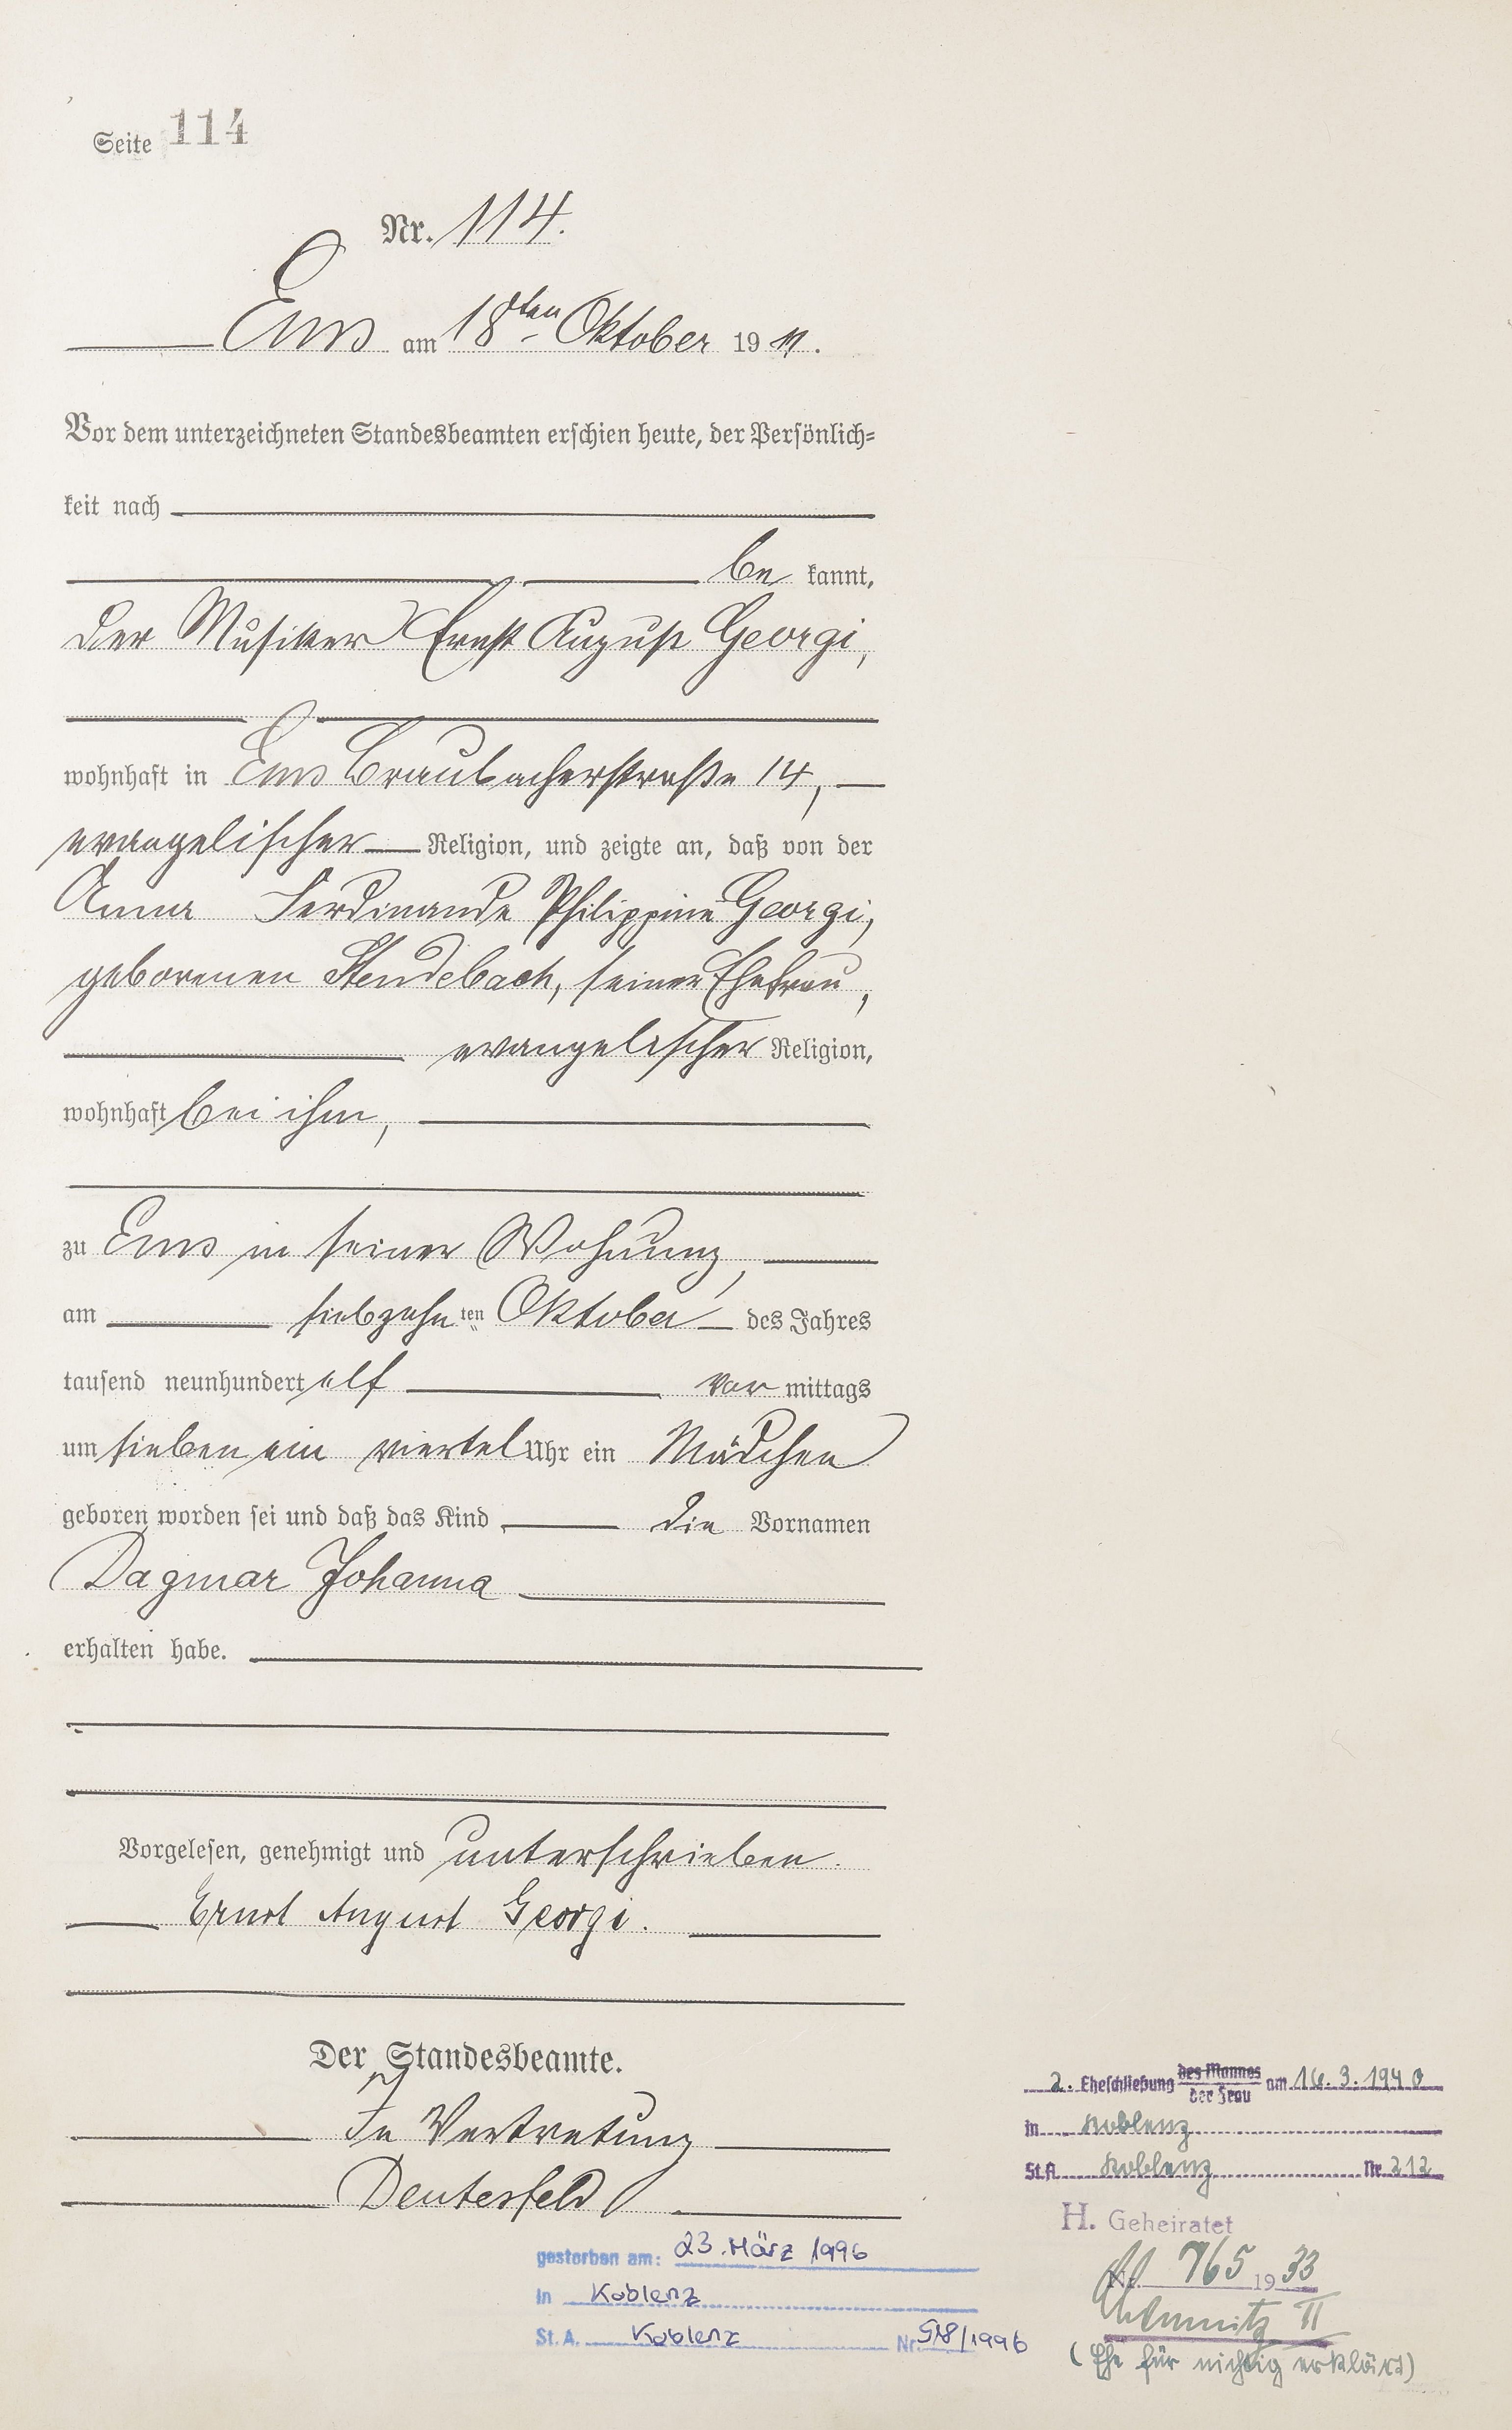 Seite 114
Nr. 114.
Ems am 18ten Oktober 1911.
Vor dem unterzeichneten Standesbeamten erschien heute, der Persönlich-
keit nach
be kannt,
der Musiker Ernst August Georgi,
wohnhaft in Ems Braubacherstraße 14,
evangelischer Religion, und zeigte an, daß von der
Anna Ferdinande Philippine Georgi,
geborenen Stendebach, seiner Ehefrau,
evangelischer Religion,
wohnhaft bei ihm,
zu Ems in seiner Wohnung,
am siebzehn ten Oktober des Jahres
tausend neunhundert elf vor mittags
um sieben ein viertel Uhr ein Mädchen
geboren worden sei und daß das Kind die Vornamen
Dagmar Johanna
erhalten habe.
Vorgelesen, genehmigt und unterschrieben.
Ernst August Georgi.
Der Standesbeamte.
In Vertretung
Deutesfeld
gestorben am: 23. März 1996
in Koblenz
St. A. Koblenz Nr. 518/1996
2. Eheschließung des Mannes der Frau am 16.3.1940
in Koblenz
St.A. Koblenz Nr. 212
H. Geheiratet
Nr. 765 1933
Chemnitz II
(Ehe für nichtig erklärt)